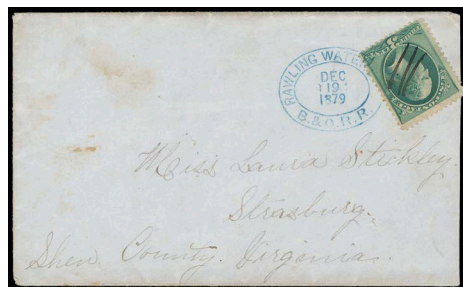 RAWLING WATER
DEC
19
1879
B. & O. R. R.
Miss Laura Stickley.
Strasburg.
Shen County. Virginia.